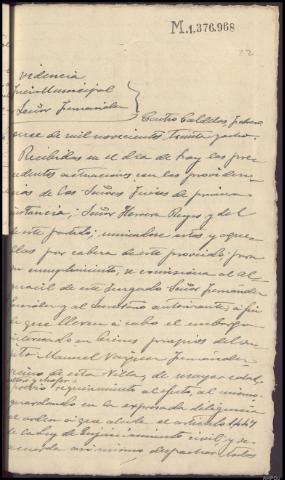 M.1.376.968
22
videncia
Juez Municipal
Señor Fernández
Castro Caldelas, Febrero
once de mil novecientos treinta y ocho.
Recibidas en el día de hoy las pre
cedentes actuaciones con las providen
cias de los Señores Jueces de prime
instancia, Señor Herrera Reyes y del
de este partido; uniéndose estas y aque
llas por cabeza de este proveido; para
su cumplimiento, se comisiona al Al
guacil de este Juzgado Señor Fernánd
y al Secretario autorizante, a fin
de que lleven a cabo el embargo
interesado en bienes propios del
Manuel Vázquez Fernández
vecino de esta Villa, de mayor edad,
previo requerimiento al efecto, al mismo,
guardando en la expresada diligencia
el orden a que alude el artículo 1.447
de la Ley de Enjuiciamiento civil, y se
acuerda asimismo despachar